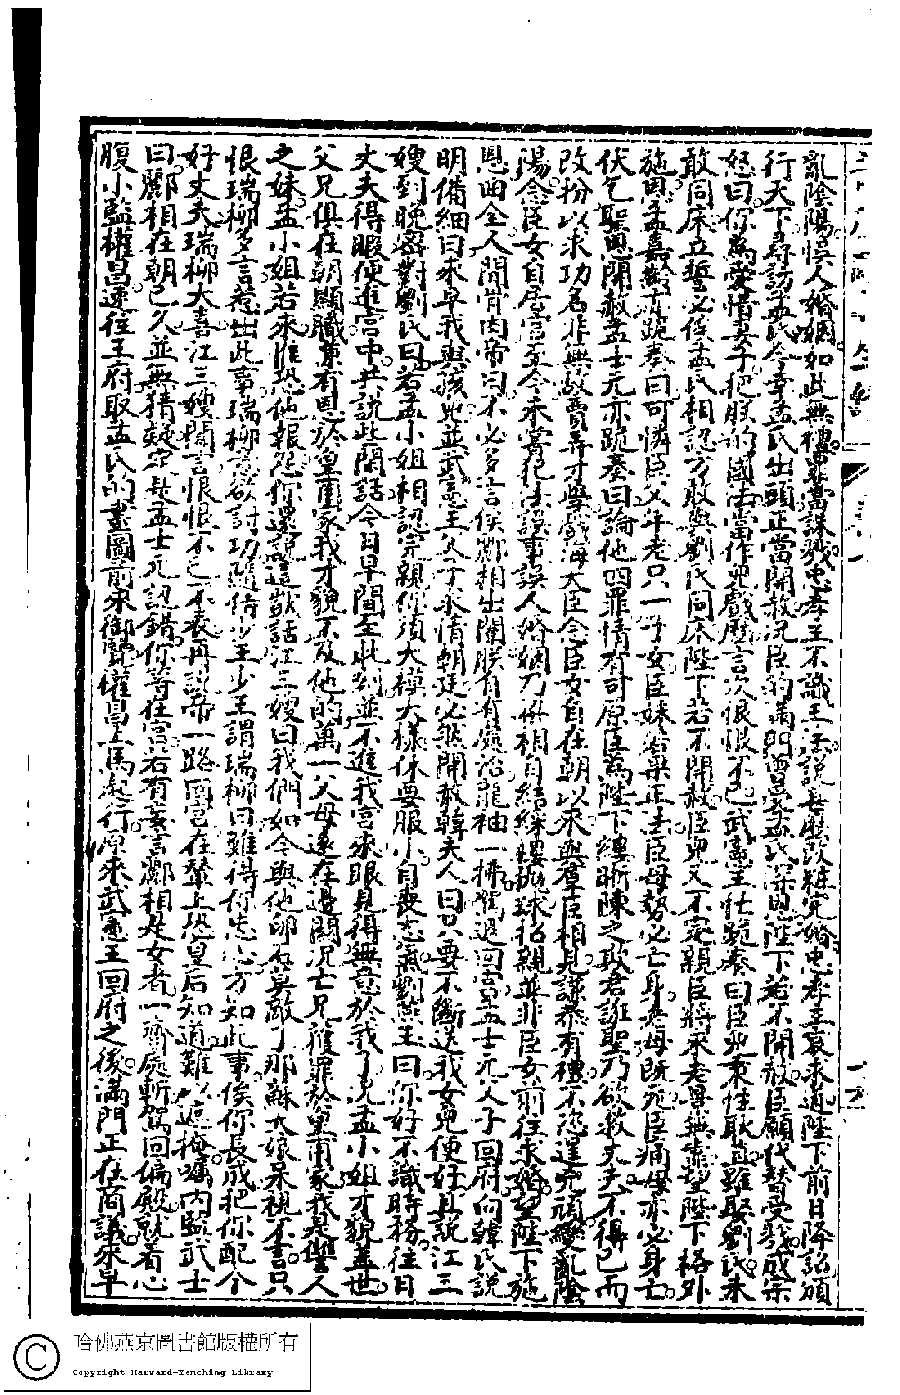 亂陰陽悞人婚姻如此無禮罪當誅戮忠孝王不識王法說長脫改粧完婚忠孝王哀求過陛下前日降詔頒
行天下尋訪孟氏今幸孟氏出頭正當開赦況臣的滿門曾受孟氏深恩陛下若不開赦臣願代替受戮成宗
怒曰你為愛惜妻子把朕的國法當作兒戲歷言次恨不已武憲王忙跪奏曰臣兒秉性耿直雖娶劉氏未
敢同床立誓必俟孟氏相認方敢與劉氏同床陛下若不開赦臣兒又不完親臣將來老專無靠望陛下格外
施恩孟嘉齡亦跪奏曰可憐臣父年老只一子女臣妹若棄正法臣母勢必亡身老母既死臣痛母亦必身亡
伏乞聖恩開赦孟士元亦跪奏曰論他四罪情有可原臣為陛下縷晰陳之欺君誑聖乃欲救丈夫不得已而
改扮以求功名非無故賣弄才學戲侮大臣今臣女自在朝以來與羣臣相見謙恭有禮不恣逞兇頑變亂陰
陽念臣女自居官至今未嘗犯法誤事誤人婚姻乃梁相自結綵樓拋球招親並非臣女前往求婚望陛下施
恩曲全人間骨肉帝曰不必多言俟酈相出闈朕自有處治龍袖一拂駕退回宮孟士元父子回府向韓氏說
明備細曰來早我與孩兒並武憲王父子求情朝廷必然開赦韓夫人曰只要不斷送我女兒便好且說江三
嫂到晚密對劉氏曰若孟小姐相認完親你須大模大樣休要服小自喪志氣劉燕玉曰你好不識時務往日
丈夫得暇便進宮中共說些閒話今日早間至此刻並不進我宮來眼見得無意於我了況孟小姐才貌蓋世
父兄俱在朝顯職兼有恩於皇甫家我才貌不及他的萬一父母遠在邊關況亡兄獲罪於皇甫家我是讐人
之妹孟小姐若來惟恐他報怨你還說這歎話江三嫂曰我們如今與他卵石莫敵了那蘇大娘呆視不言只
恨瑞柳多言惹出此事瑞柳意欲討功隨侍少王少王謂瑞柳曰難得你忠心方知此事俟你長成把你配个
好丈夫瑞柳大喜江三嫂聞言恨恨不已不表再說帝一路回宮在輦上恐皇后知道難以遮掩囑內監武士
曰酈相在朝已久並無猜疑定是孟士元認錯你等在宮若有妄言酈相是女者一齊處斬駕回偏殿就着心
腹小監權昌速往王府取孟氏的畫圖前來御覽權昌上馬起行原來武憲王回府之後滿門正在商議來早
哈佛燕京圖書館版權所有
Copyright Harvard-Yenching Library